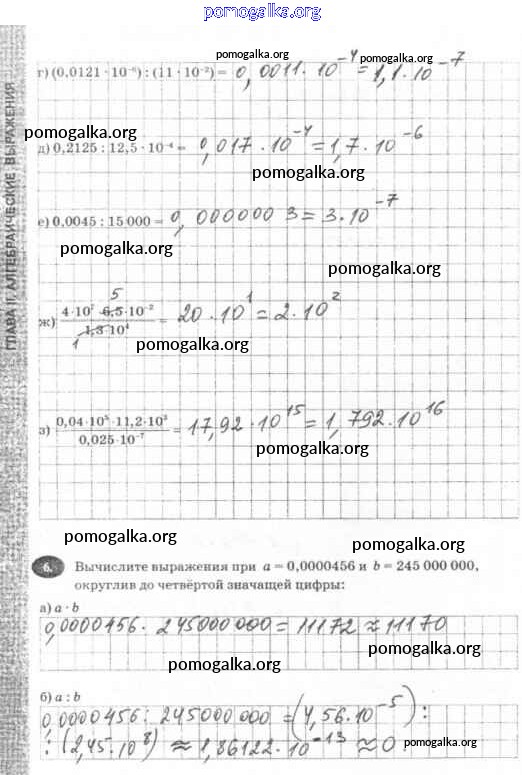 pomogalka.org
pomogalka.org
pomogalka.org
г) (0,0121 · 10⁻⁶) : (11 · 10⁻²) = 0,0011 · 10⁻⁴ = 1,1 · 10⁻⁷
pomogalka.org
д) 0,2125 : 12,5 · 10⁻⁴ = 0,017 · 10⁻⁴ = 1,7 · 10⁻⁶
pomogalka.org
е) 0,0045 : 15 000 = 0,0000003 = 3 · 10⁻⁷
pomogalka.org
pomogalka.org
ж) 4 · 10⁷ · 6,5 · 10⁻² / 1,3 · 10⁴ = 20 · 10¹ = 2 · 10²
5
1
pomogalka.org
з) 0,04 · 10⁵ · 11,2 · 10³ / 0,025 · 10⁻⁷ = 17,92 · 10¹⁵ = 1,792 · 10¹⁶
pomogalka.org
pomogalka.org
pomogalka.org
6. Вычислите выражения при a = 0,0000456 и b = 245 000 000,
округлив до четвёртой значащей цифры:
а) a · b
0,0000456 · 245000000 = 11172 ≈ 11170
pomogalka.org
pomogalka.org
б) a : b
0,0000456 : 245000 000 = (4,56 · 10⁻⁵) :
: (2,45 · 10⁸) ≈ 1,86122 · 10⁻¹³ ≈ 0
pomogalka.org
ГЛАВА II. АЛГЕБРАИЧЕСКИЕ ВЫРАЖЕНИЯ